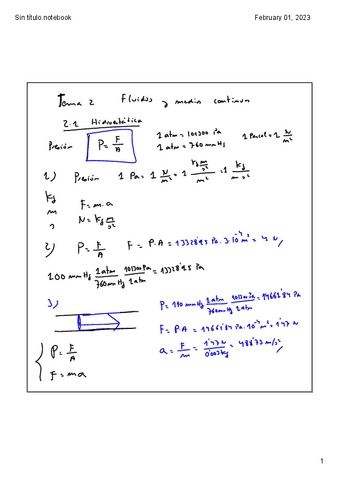 Sin título.notebook February 01, 2023
Tema 2 Fluidos y medios continuos
2.1 Hidrostática
Presión P = F/A 1 atm = 101300 Pa 1 Pascal = 1 N/m²
1 atm = 760 mmHg
1) Presión 1 Pa = 1 N/m² = 1 kg m/s² / m² = 1 kg/m·s²
kg
m F = m·a
s N = kg m/s²
2) P = F/A F = P·A = 13328'95 Pa · 3·10⁻⁴ m² = 4 N
100 mmHg 1 atm/760 mmHg 101300 Pa/1 atm = 13328'95 Pa
3) P = 110 mmHg 1 atm/760 mmHg 101300 Pa/1 atm = 14661'84 Pa
F = P·A = 14661'84 Pa · 10⁻⁴ m² = 1'47 N
P = F/A a = F/m = 1'47 N/0'003 kg = 488'73 m/s²
F = m·a
1